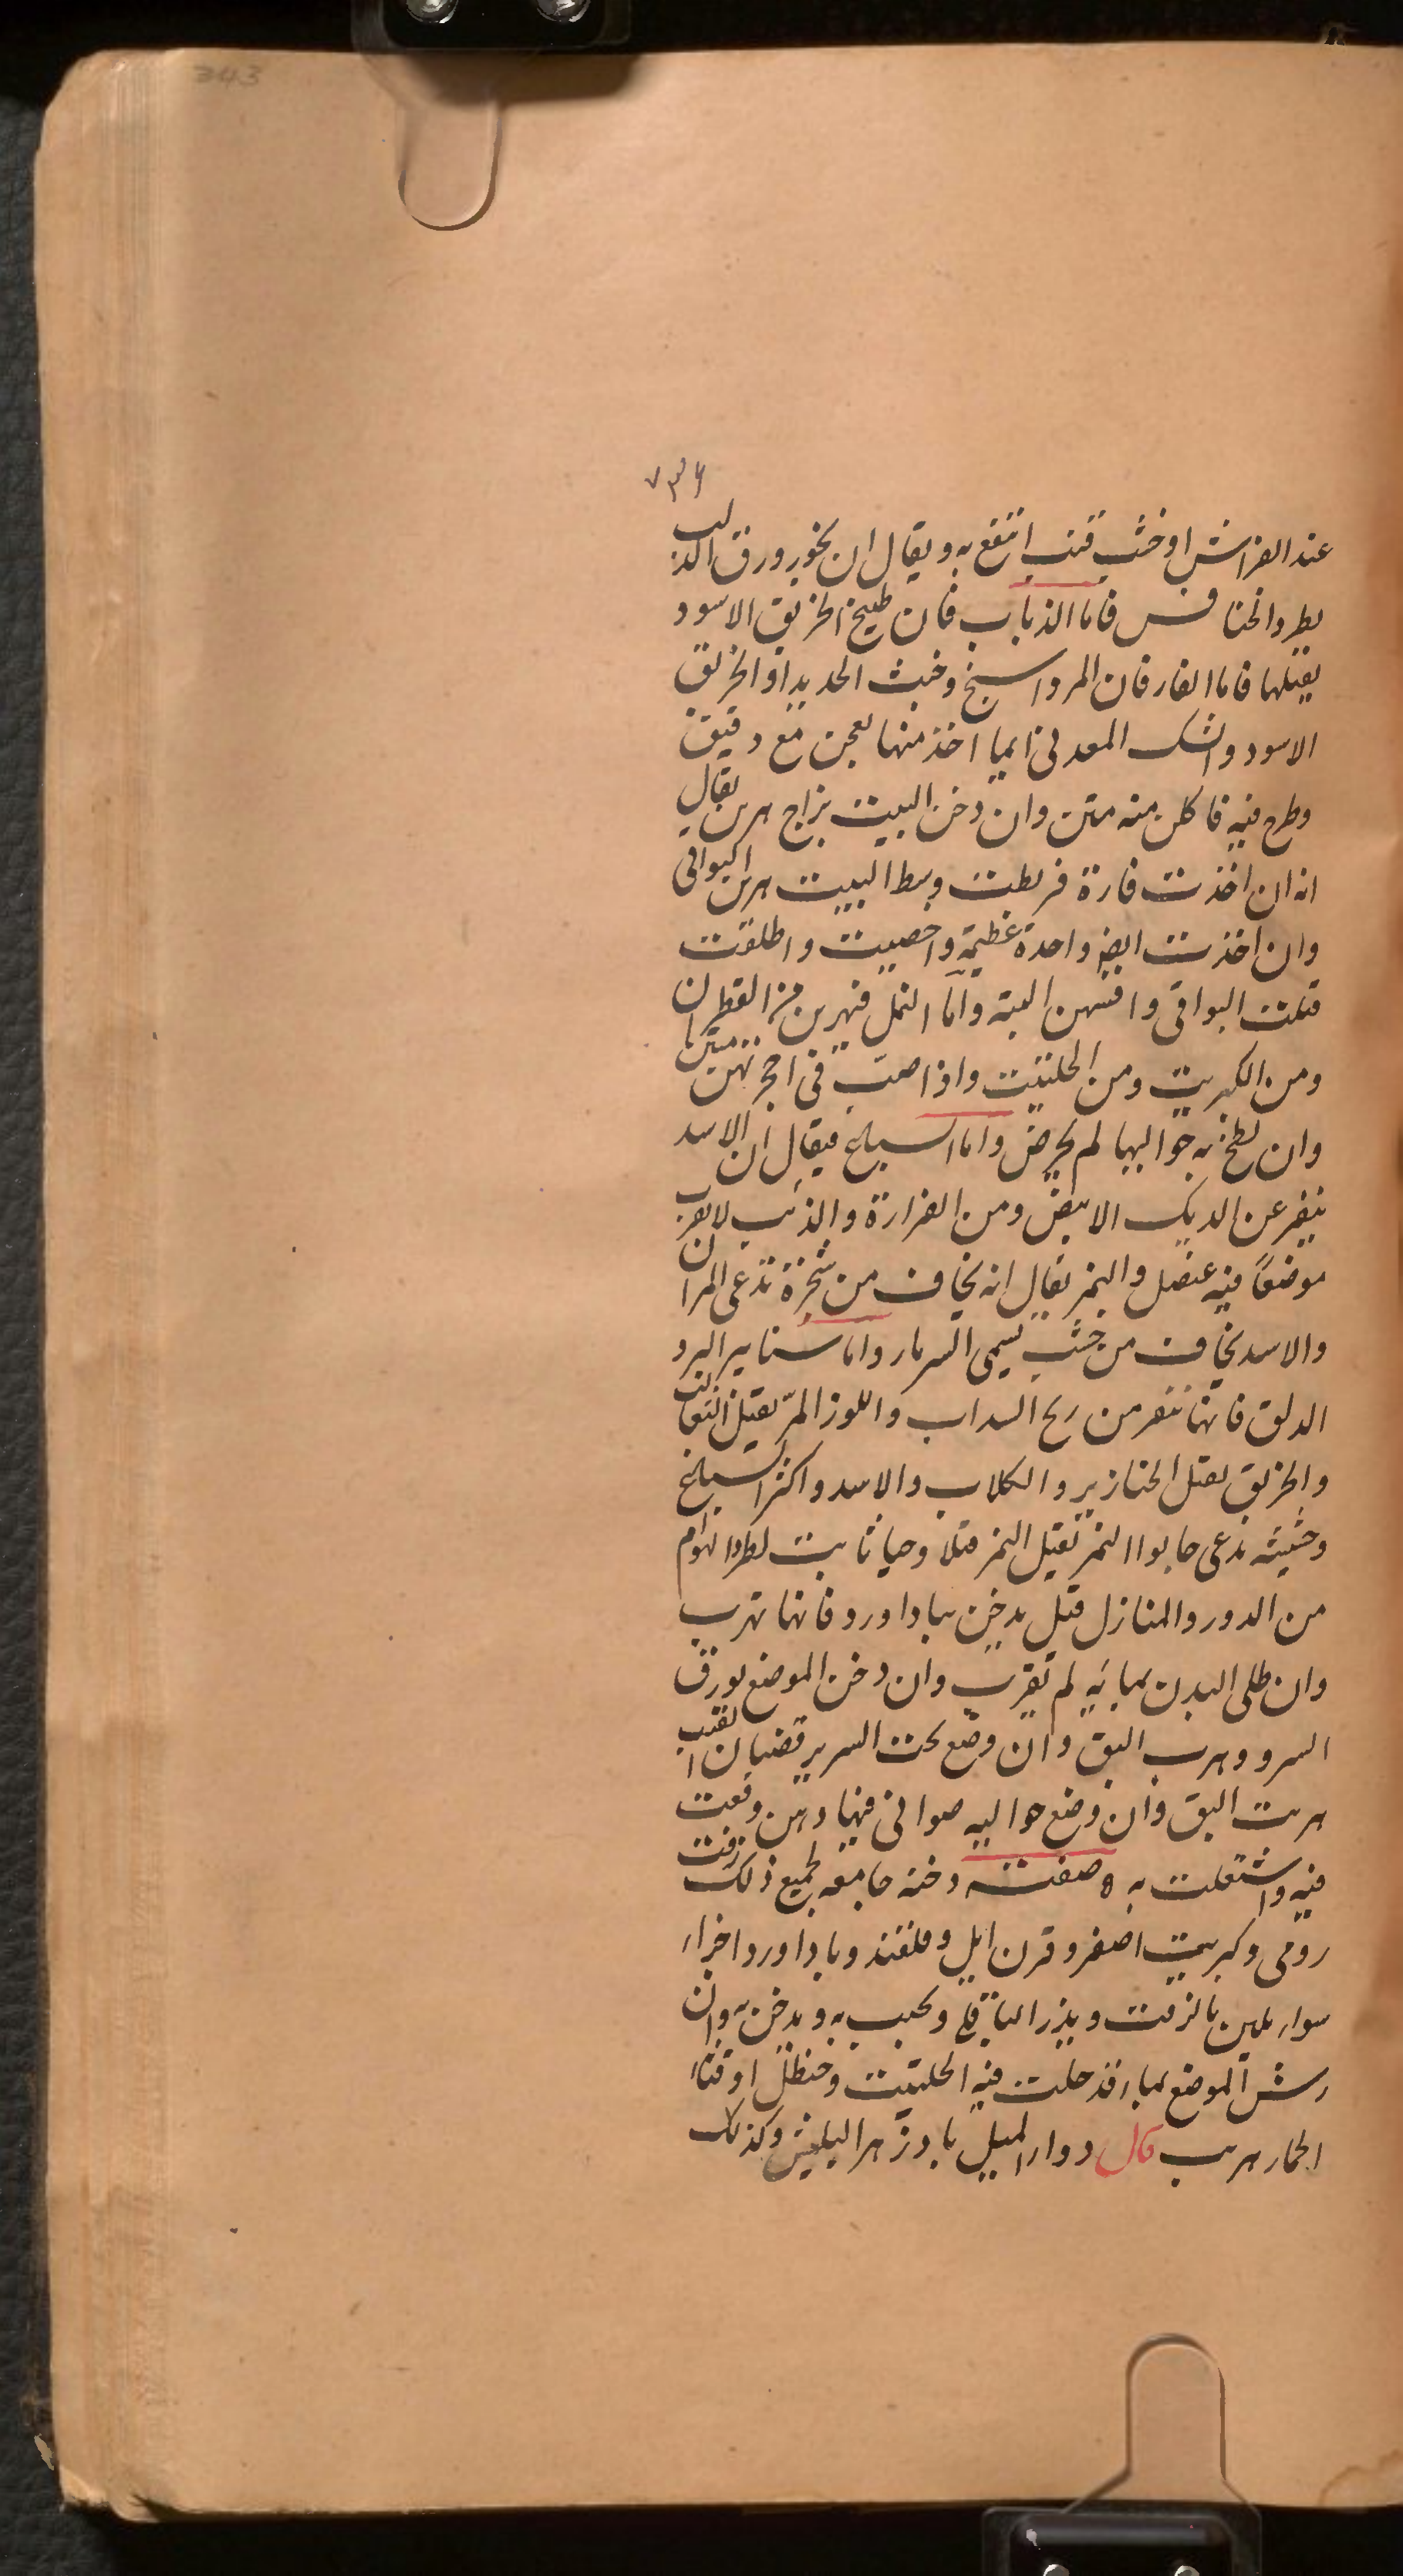 343
٧٣٦
عند الفراش او خشب قنب انتفع به ويقال ان بخور ورق الدلب
يطرد الخنافس فاما الذباب فان طبيخ الخربق الاسود
يقتلها فاما الفار فان المرداسنج وخبث الحديد او الخربق
الاسود والشك المعدني ايما اخذ منها بعجن مع دقيق
وطرح فيه فاكلن منه متن وان دخن البيت بزاج هربن يقال
انه ان اخذت فارة فربطت وسط البيت هربن البواقي
وان اخذت ايضا واحدة عظيمة واخصيت واطلقت
قتلت البواقي وافنتهن البتة واما النمل فيهربن من القطران
ومن الكبريت ومن الحلتيت واذا صب في اجحرتهن متن
وان لطخ به حواليها لم يخرجن واما السباع فيقال ان الاسد
ينفر عن الديك الابيض ومن الفرارة والذئب لا يقرب
موضعا فيه عنصل والنمر يقال انه يخاف من شجرة تدعى المران
والاسد يخاف من خشب يسمى السرمار واما سنانير البرد
الدلق فانها تنفر من ريح السداب واللوز المر يقتل الثعالب
والخربق يقتل الخنازير والكلاب والاسد واكثر السباع
وحشيشه تدعى حابوا النمر يقتل النمر قتلا وحيا ثابت لطرد الهوام
من الدور والمنازل قيل يدخن بباداورد فانها تهرب
وان طلى البدن بمائه لم تقرب وان دخن الموضع بورق
السرو وهرب البق وان وضع تحت السرير قضبان القنب
هربت البق وان وضع حواليه صواني فيها دهن وقعت
فيه واشتعلت به ه صفت دخنه جامعه لجميع ذلك زفت
رومى وكبريت اصفر وقرن ايل وقلقند وباداورد اجزاء
سواء يلين بالزفت وبزر البنج ويحبب به ويدخن به وان
رش الموضع بماء قد حلت فيه الحلتيت وحنظل او قثاء
الحمار هرب قال دواء الميل بادزهر البيش وكذلك